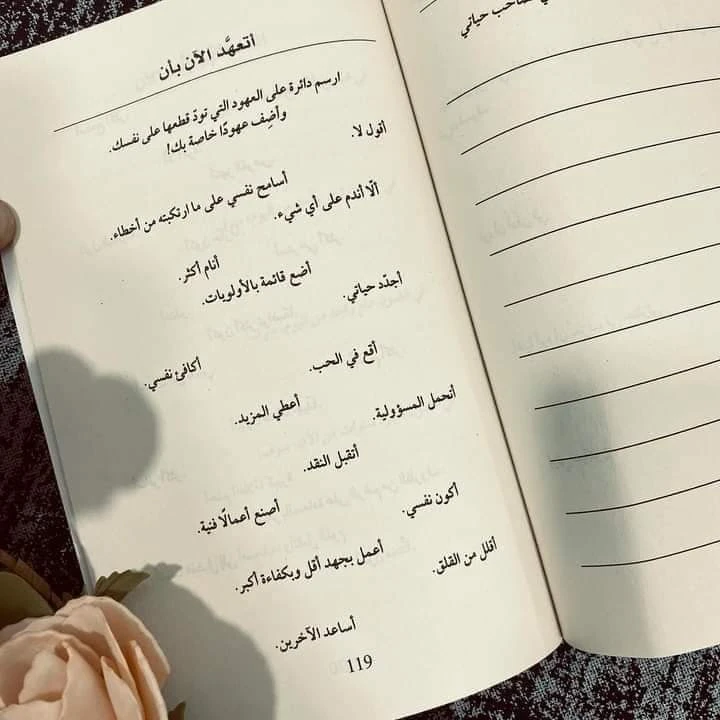 أتعهَّد الآن بأن
ارسم دائرة على العهود التي تودّ قطعها على نفسك.
وأضِف عهودًا خاصة بك!
أقول لا.
أسامح نفسي على ما ارتكبته من أخطاء.
ألّا أندم على أي شيء.
أنام أكثر.
أضع قائمة بالأولويات.
أجدّد حياتي.
أكافئ نفسي.
أقع في الحب.
أعطي المزيد.
أتحمل المسؤولية.
أتقبل النقد.
أصنع أعمالًا فنية.
أكون نفسي.
أعمل بجهد أقل وبكفاءة أكبر.
أقلل من القلق.
أساعد الآخرين.
119
حياتي